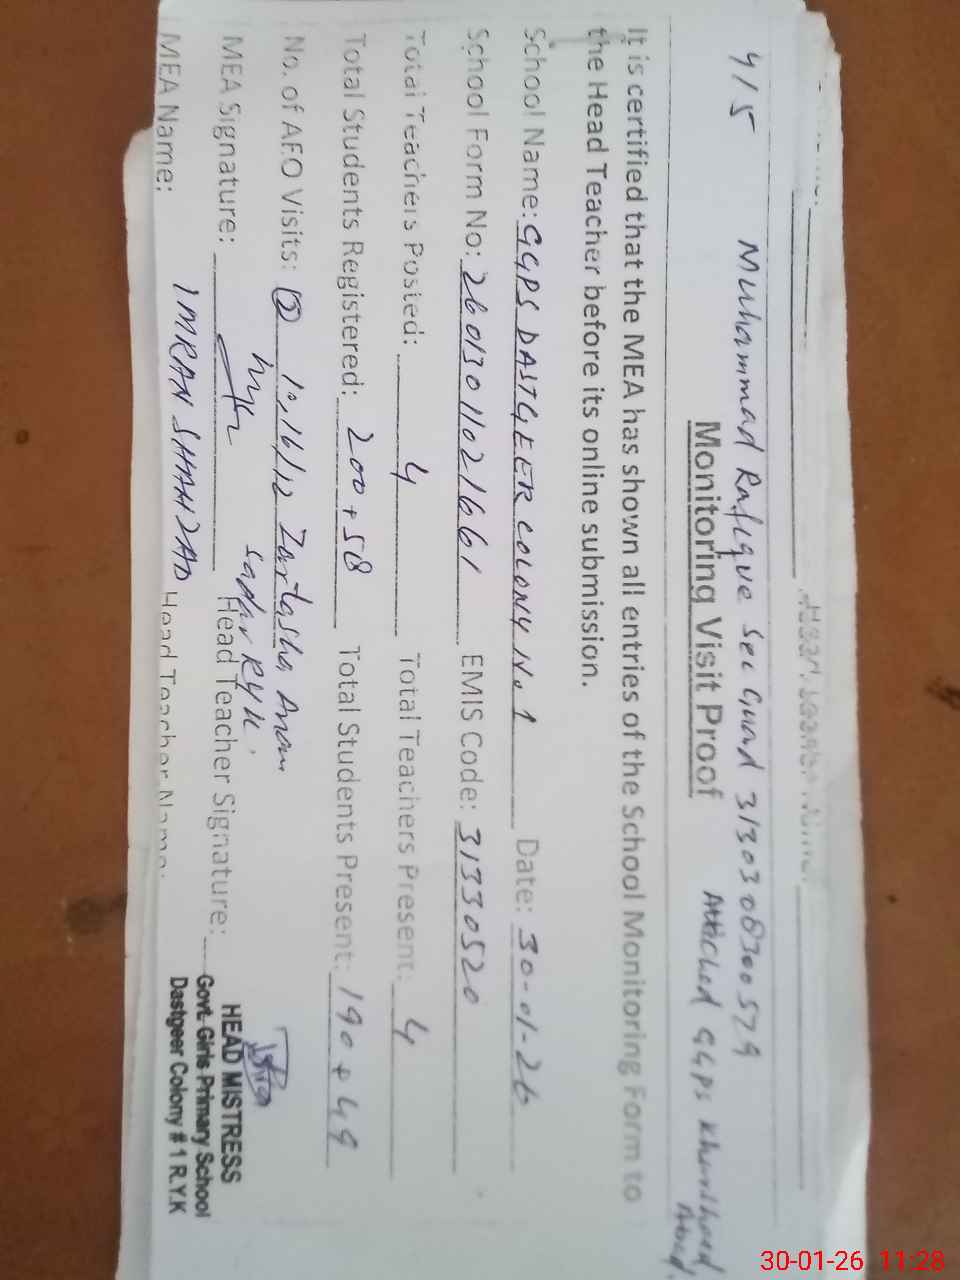 4/5 Muhammad Rafique Sec Guard 3130308300579
Attached GGPS Khursheed Abad.
Monitoring Visit Proof
It is certified that the MEA has shown all entries of the School Monitoring Form to
the Head Teacher before its online submission.
School Name: GGPS DASTGEER COLONY No. 1 Date: 30-01-26
School Form No: 2601301102 1661 EMIS Code: 31330520
Total Teachers Posted: 4 Total Teachers Present: 4
Total Students Registered: 200 + 58 Total Students Present: 190 + 49
No. of AEO Visits: 3 10,16/12 Zartasha Anam
Sadar RYK.
MEA Signature: Head Teacher Signature:
MEA Name: IMRAN SHAHZAD Head Teacher Name:
HEAD MISTRESS
Govt. Girls Primary School
Dastgeer Colony # 1 R.Y.K
30-01-26 11:28